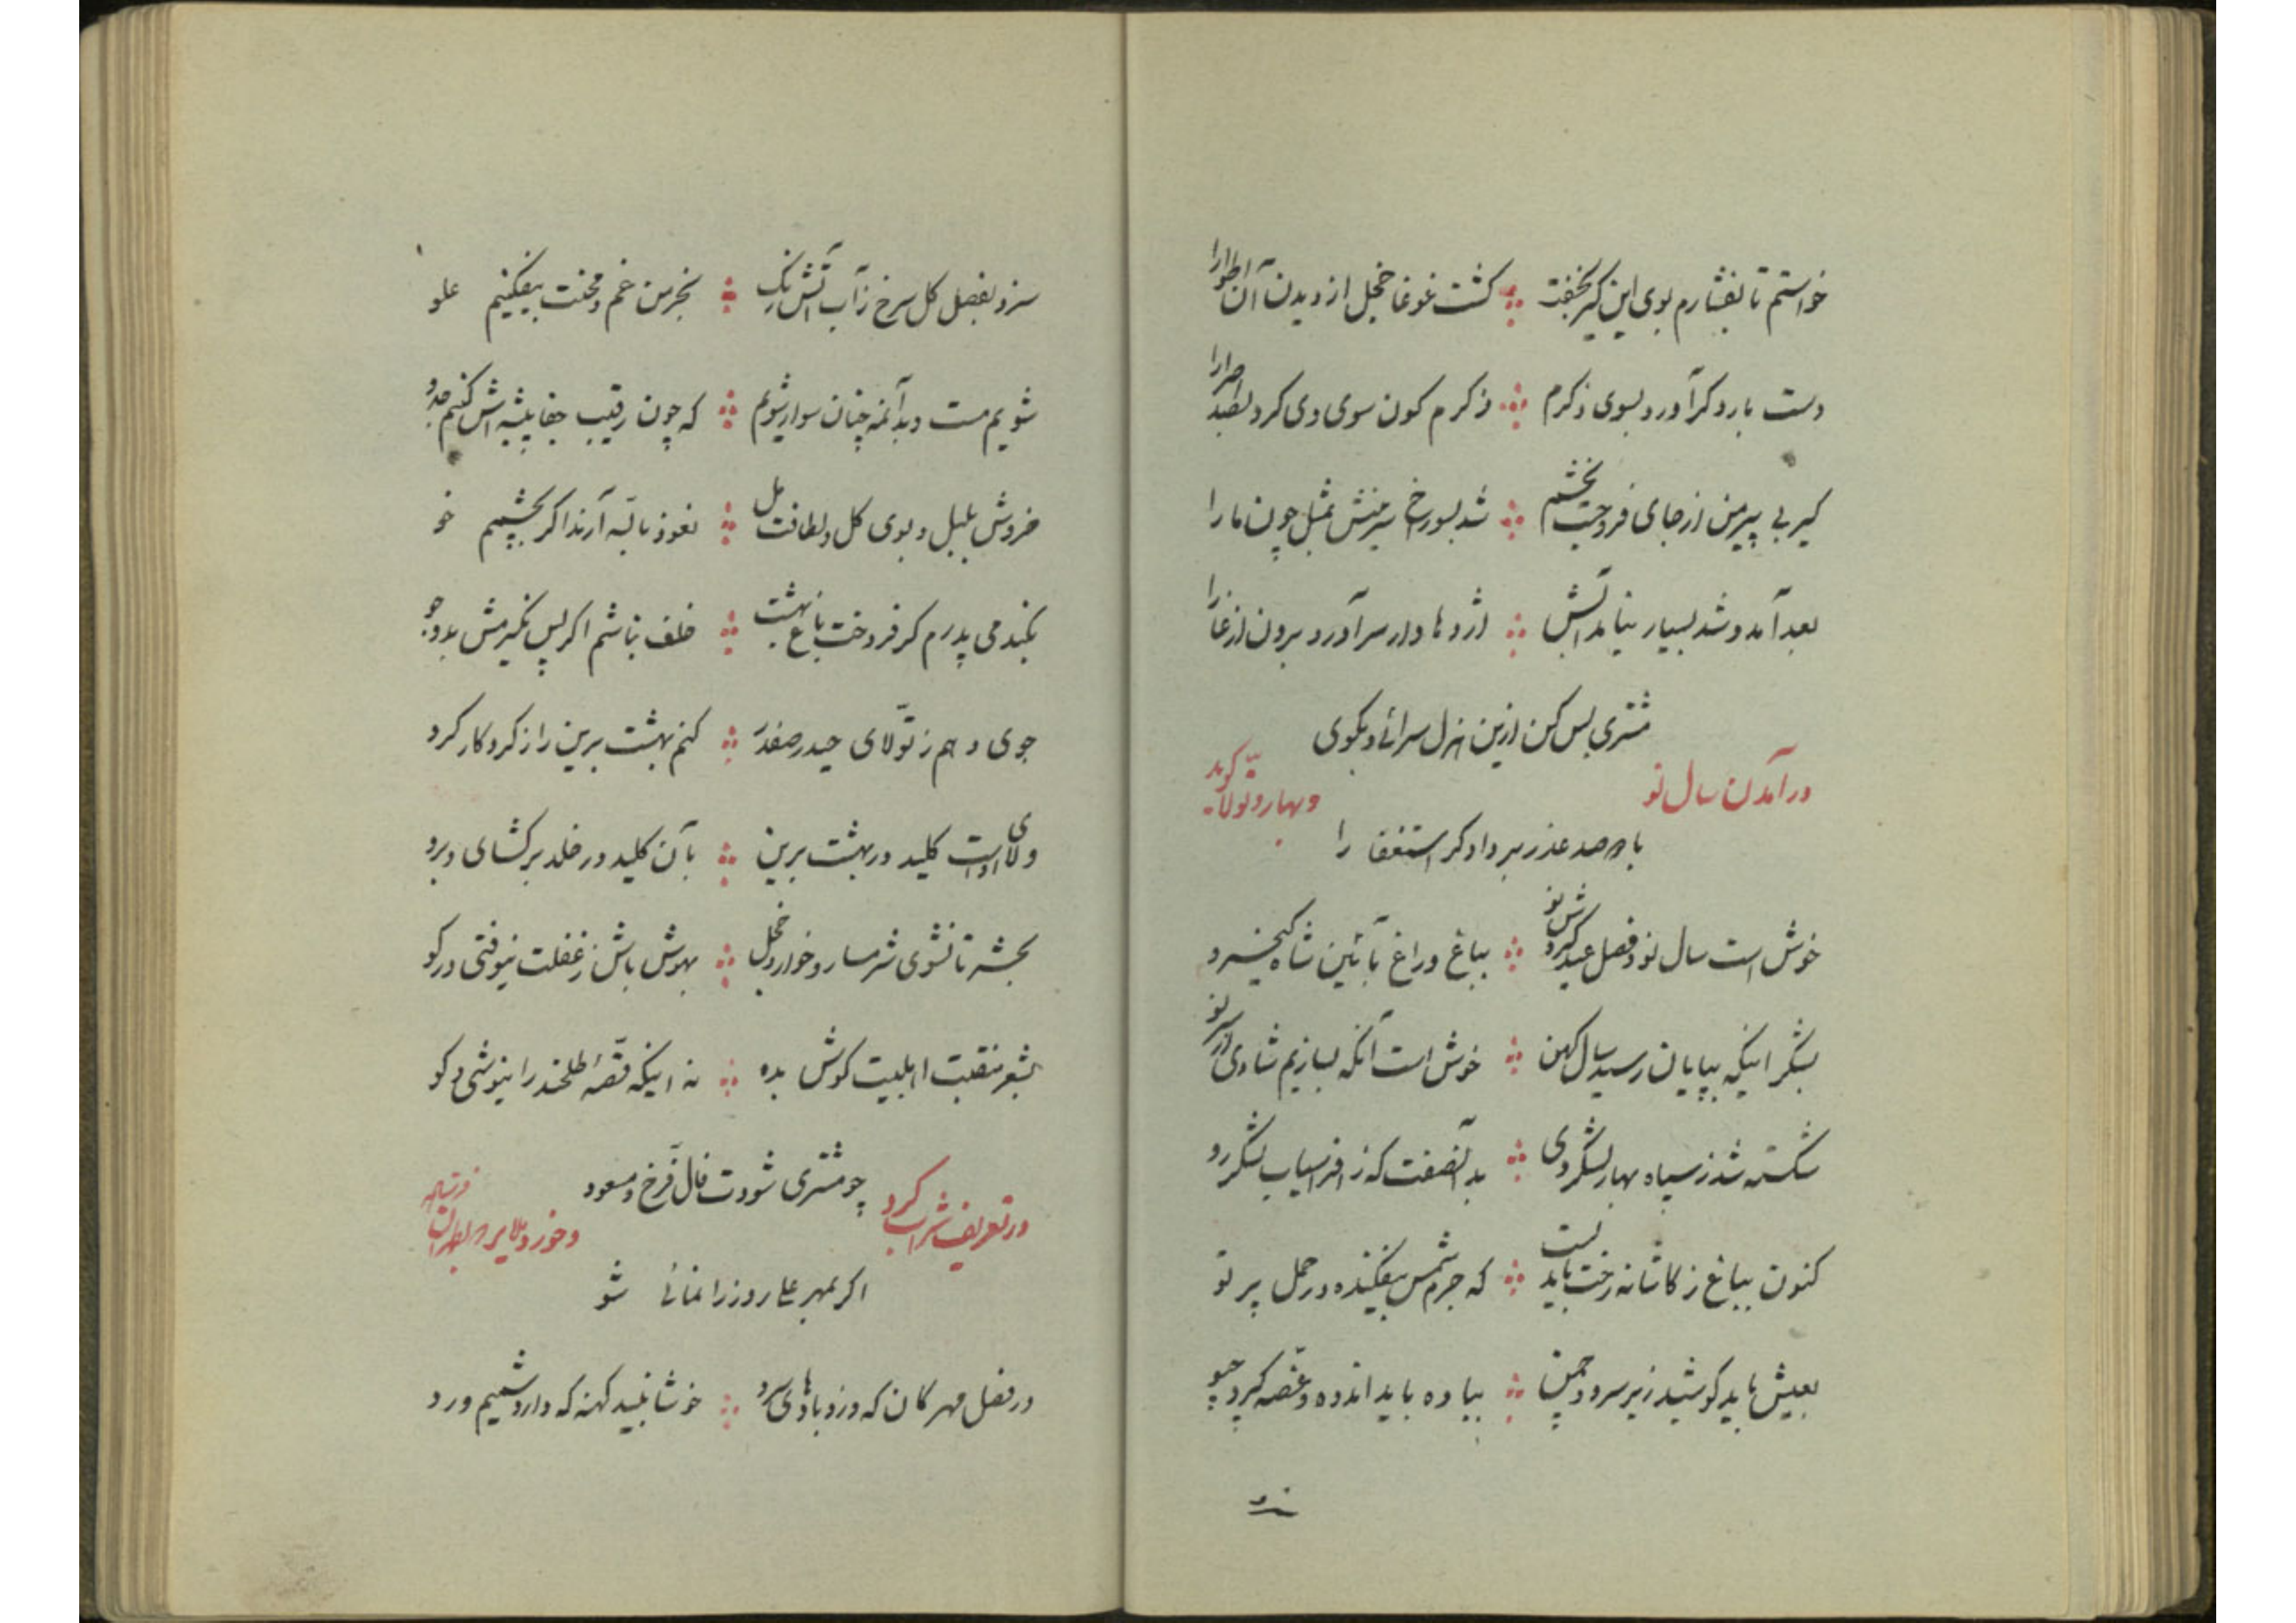 خواستم تا بفشارم بوی این کیر نخفت کشت غوغا خجل از دیدن آن اطوارا
دست بارد کر آورد بسوی ذکرم ذکرم کون سوی وی کرد بصد اصرارا
کیر بی پیر من از جای فروجست بخشم شد بسوراخ سرینش بمثل چون مارا
بعد آمد و شد بسیار بیامد آبش اژدها وار سر آورد برون از غارا
مشتری بس کن ازین هزل سرائی و بکوی
در آمدن سال نو و بهار و تولّا کوید
با دو صد عذر بر دادکر استغفارا
خوش است سال نو و فصل عید و کردش نو بباغ و راغ بآئین شاه کیخسرو
بشکر اینکه بپایان رسید سال کهن خوش است آنکه بسازیم شادی از سر نو
شکسته شد ز سپاه بهار لشکر دی بدآنصفت که ز افراسیاب لشکر زو
کنون بباغ ز کاشانه رخت باید بست که جرم شمس بیفکنده در حمل پرتو
بعیش باید کوشید زیر سرو و چمن بباده باید اندوه و غصّه کرد چو
سزد بفصل کل سرخ ز آب آتش رنک بخرمن غم و محنت بیفکنیم علو
شویم مست و بدآنمه چنان سوار شویم که چون رقیب جفا پیشه اش کنیم جدو
خروش بلبل و بوی کل و لطافت مل نعوذ بالله آرند اکر بچشیم خو
بکندمی پدرم کر فروخت باغ بهشت خلف نباشم اکر پس نکیرمش بدو جو
جوی دهم ز تولّای حیدر صفدر کنم بهشت برین را ز کردکار کرو
ولای اوست کلید در بهشت برین بآن کلید در خلد برکشای و برو
بحشر تا نشوی شرمسار و خوار و خجل بهوش باش ز غفلت نیوفتی در کو
بشعر منقبت اهلبیت کوش بده نه اینکه قصّهٔ طلخند را نیوشی و کو
چو مشتری شودت فال فرّخ و مسعود
در تعریف شراب کرد و خورد و ملایر طهران فرستاد
اکر بمهر علی روز را نمائی شو
در فصل مهرکان که وزد بادهای سرد خوشا نبید کهنه که دارد شمیم ورد